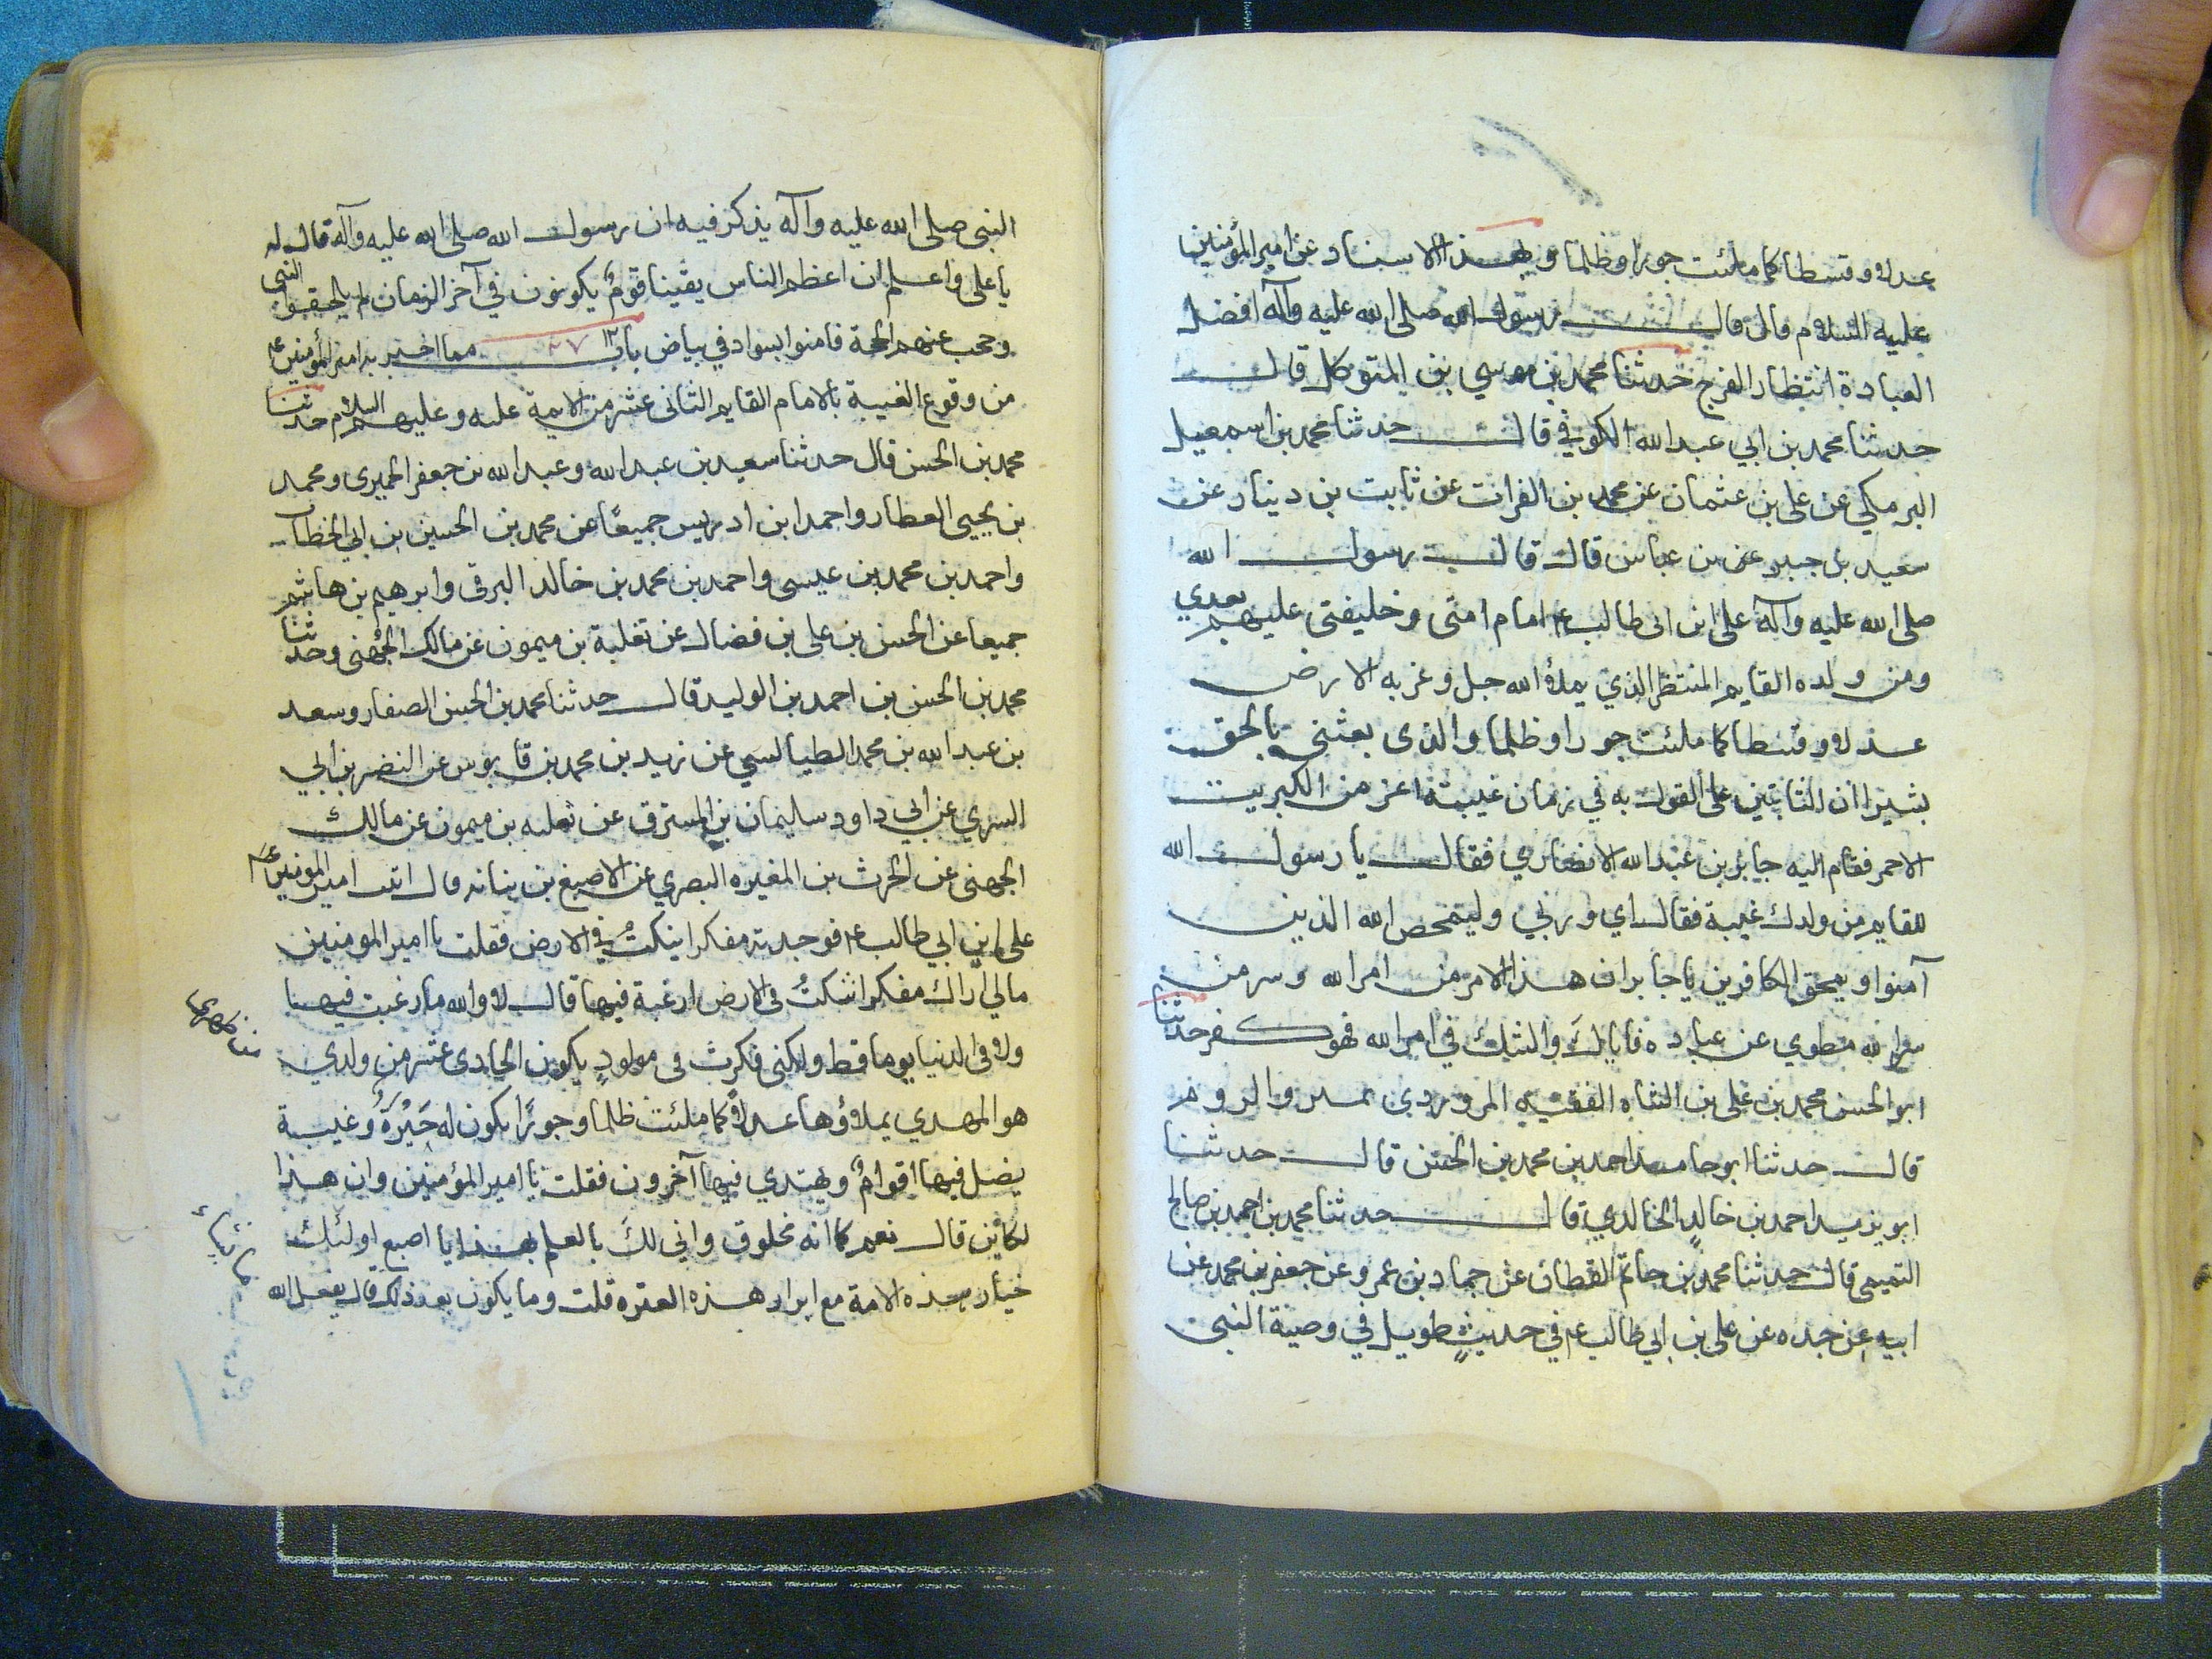 عدلا وقسطا كما ملئت جورا وظلما وبهذا الاسناد عن امير المؤمنين
عليه السلام قال قال رسول الله صلى الله عليه وآله افضل
العبادة انتظار الفرج حدثنا محمد بن موسي بن المتوكل قال
حدثنا محمد بن ابي عبد الله الكوفي قال حدثنا محمد بن اسمعيل
البرمكي عن على بن عثمان عن محمد بن الفرات عن ثابت بن دينار عن
سعيد بن جبير عن بن عباس قال قال رسول الله
صلى الله عليه وآله على ابن ابى طالب ع امام امتى وخليفتى عليهم بعدي
ومن ولده القايم المنتظر الذي يملأ الله جل وعز به الارض
عدلا وقسطا كما ملئت جورا وظلما والذى بعثنى بالحق
بشيرا ان الثابتين على القول به في زمان غيبته اعز من الكبريت
الاحمر فقام اليه جابر بن عبد الله الانصاري فقال يا رسول الله
للقايم من ولدك غيبة فقال اي وربي وليتمحص الله الذين
آمنوا ويمحق الكافرين يا جابر ان هذا الامر من امر الله وسر من
سر الله مطوي عن عباده فاياك والشك في امر الله فهو كفر حدثنا
ابو الحسن محمد بن على بن الشاه الفقيه المروردي بمرو الروذ
قال حدثنا ابو حامد احمد بن محمد بن الحسن قال حدثنا
ابو يزيد احمد بن خالد الخالدي قال حدثنا محمد بن احمد بن صالح
التميمى قال حدثنا محمد بن حاتم القطان عن حماد بن عمرو عن جعفر بن محمد عن
ابيه عن جده عن على بن ابي طالب ع في حديث طويل في وصية النبى
النبى صلى الله عليه وآله يذكر فيه ان رسول الله صلى الله عليه وآله قال له
يا على واعلم ان اعظم الناس يقينا قوم يكونون في آخر الزمان لم يلحقوا النبي
وحجب عنهم الحجة فامنوا بسواد في بياض باب ٢٧ مما اخبر به امير المؤمنين ع
من وقوع الغيبة بالامام القايم الثانى عشر من الايمة عليه وعليهم السلام حدثنا
محمد بن الحسن قال حدثنا سعيد بن عبد الله وعبد الله بن جعفر الحميرى ومحمد
بن يحيى العطار واحمد ابن ادريس جميعا عن محمد بن الحسين بن ابي الخطاب
واحمد بن محمد بن عيسى واحمد بن محمد بن خالد البرقى وابرهيم بن هاشم
جميعا عن الحسن بن على بن فضال عن ثعلبة بن ميمون عن مالك الجهنى وحدثنا
محمد بن الحسن بن احمد بن الوليد قال حدثنا محمد بن الحسن الصفار وسعد
بن عبد الله بن محمد الطيالسي عن زيد بن محمد بن قابوس عن النضر بن ابي
السري عن ابي داود سليمان بن المسترق عن ثعلبه بن ميمون عن مالك
الجهنى عن الحرث بن المغيره البصري عن الاصبغ بن نباته قال اتيت امير المومنين ع
على ابن ابي طالب ع فوجدته مفكرا ينكت في الارض فقلت يا امير المومنين
مالي اراك مفكرا تنكت فى الارض ارغبة فيها قال لا والله ما رغبت فيها
ولا فى الدنيا يوما قط ولكنى فكرت فى مولود يكون الحادى عشر من ولدي
هو المهدي يملاؤها عدلا كما ملئت ظلما وجورا يكون له حيرة وغيبة
يضل فيها اقوام ويهتدي فيها آخرون فقلت يا امير المؤمنين وان هذا
لكائن قال نعم كما انه مخلوق واني لك بالعلم بهذا يا اصبغ اولئك
خيار هذه الامة مع ابرار هذه العتره قلت وما يكون بعد ذلك قال يفعل الله